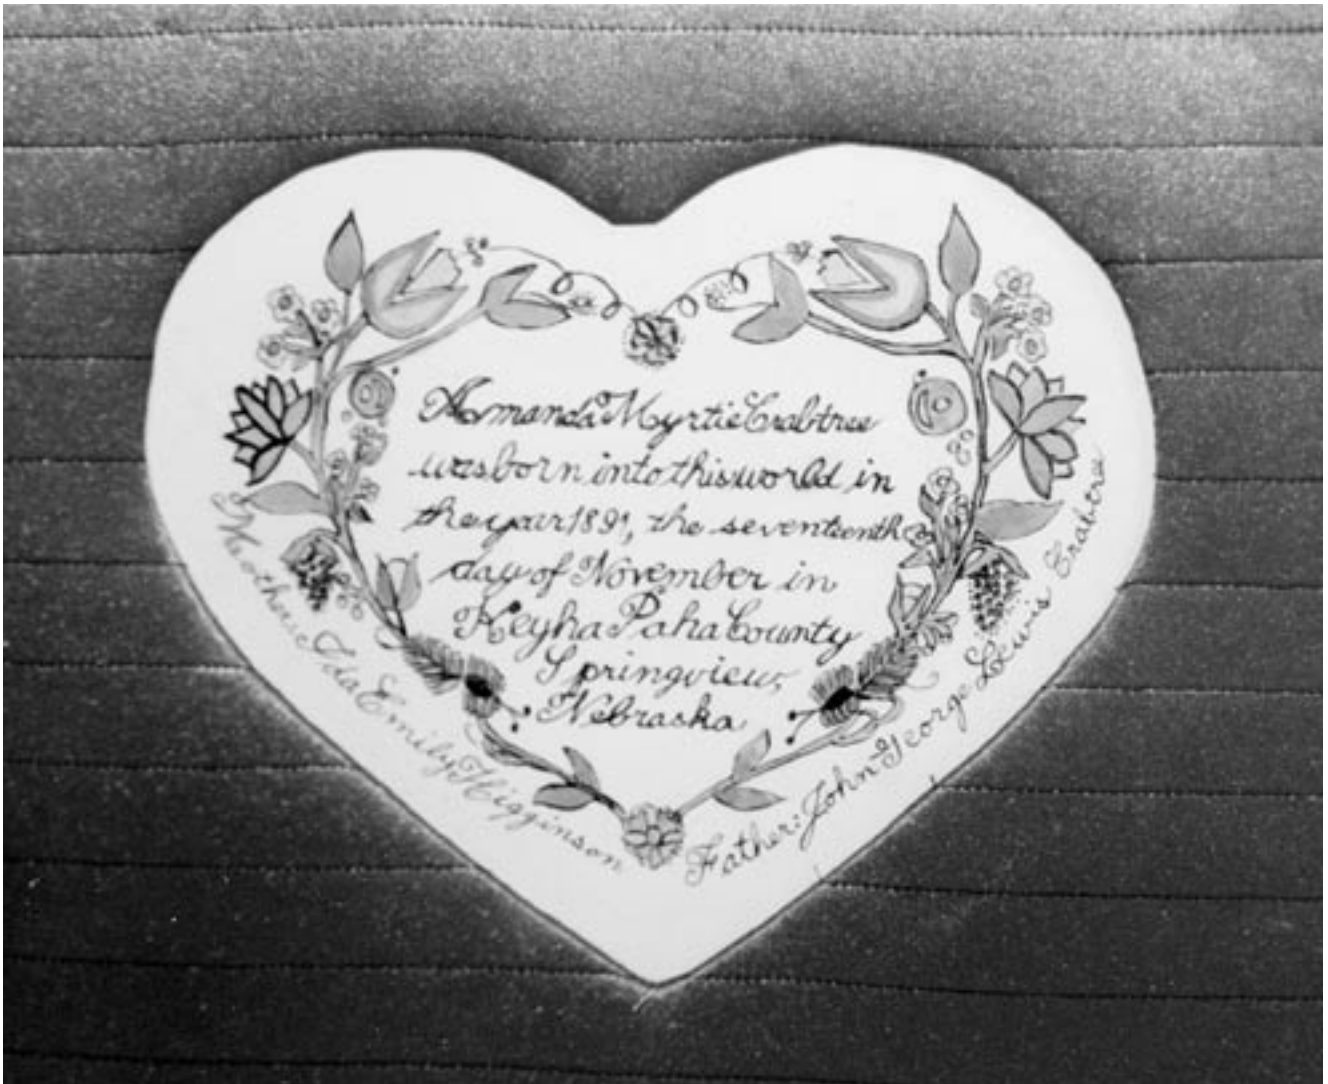 Amanda Myrtie Crabtree
was born into this world in
the year 1891, the seventeenth
day of November in
Keyha Paha County
Springview,
Nebraska
Mother: Ida Emily Higginson
Father: John George Lewis Crabtree